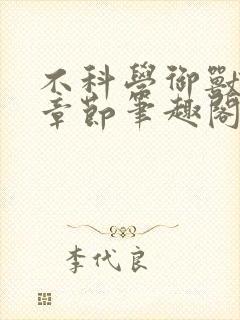 不科學御獸
章節筆趣閣
李代良